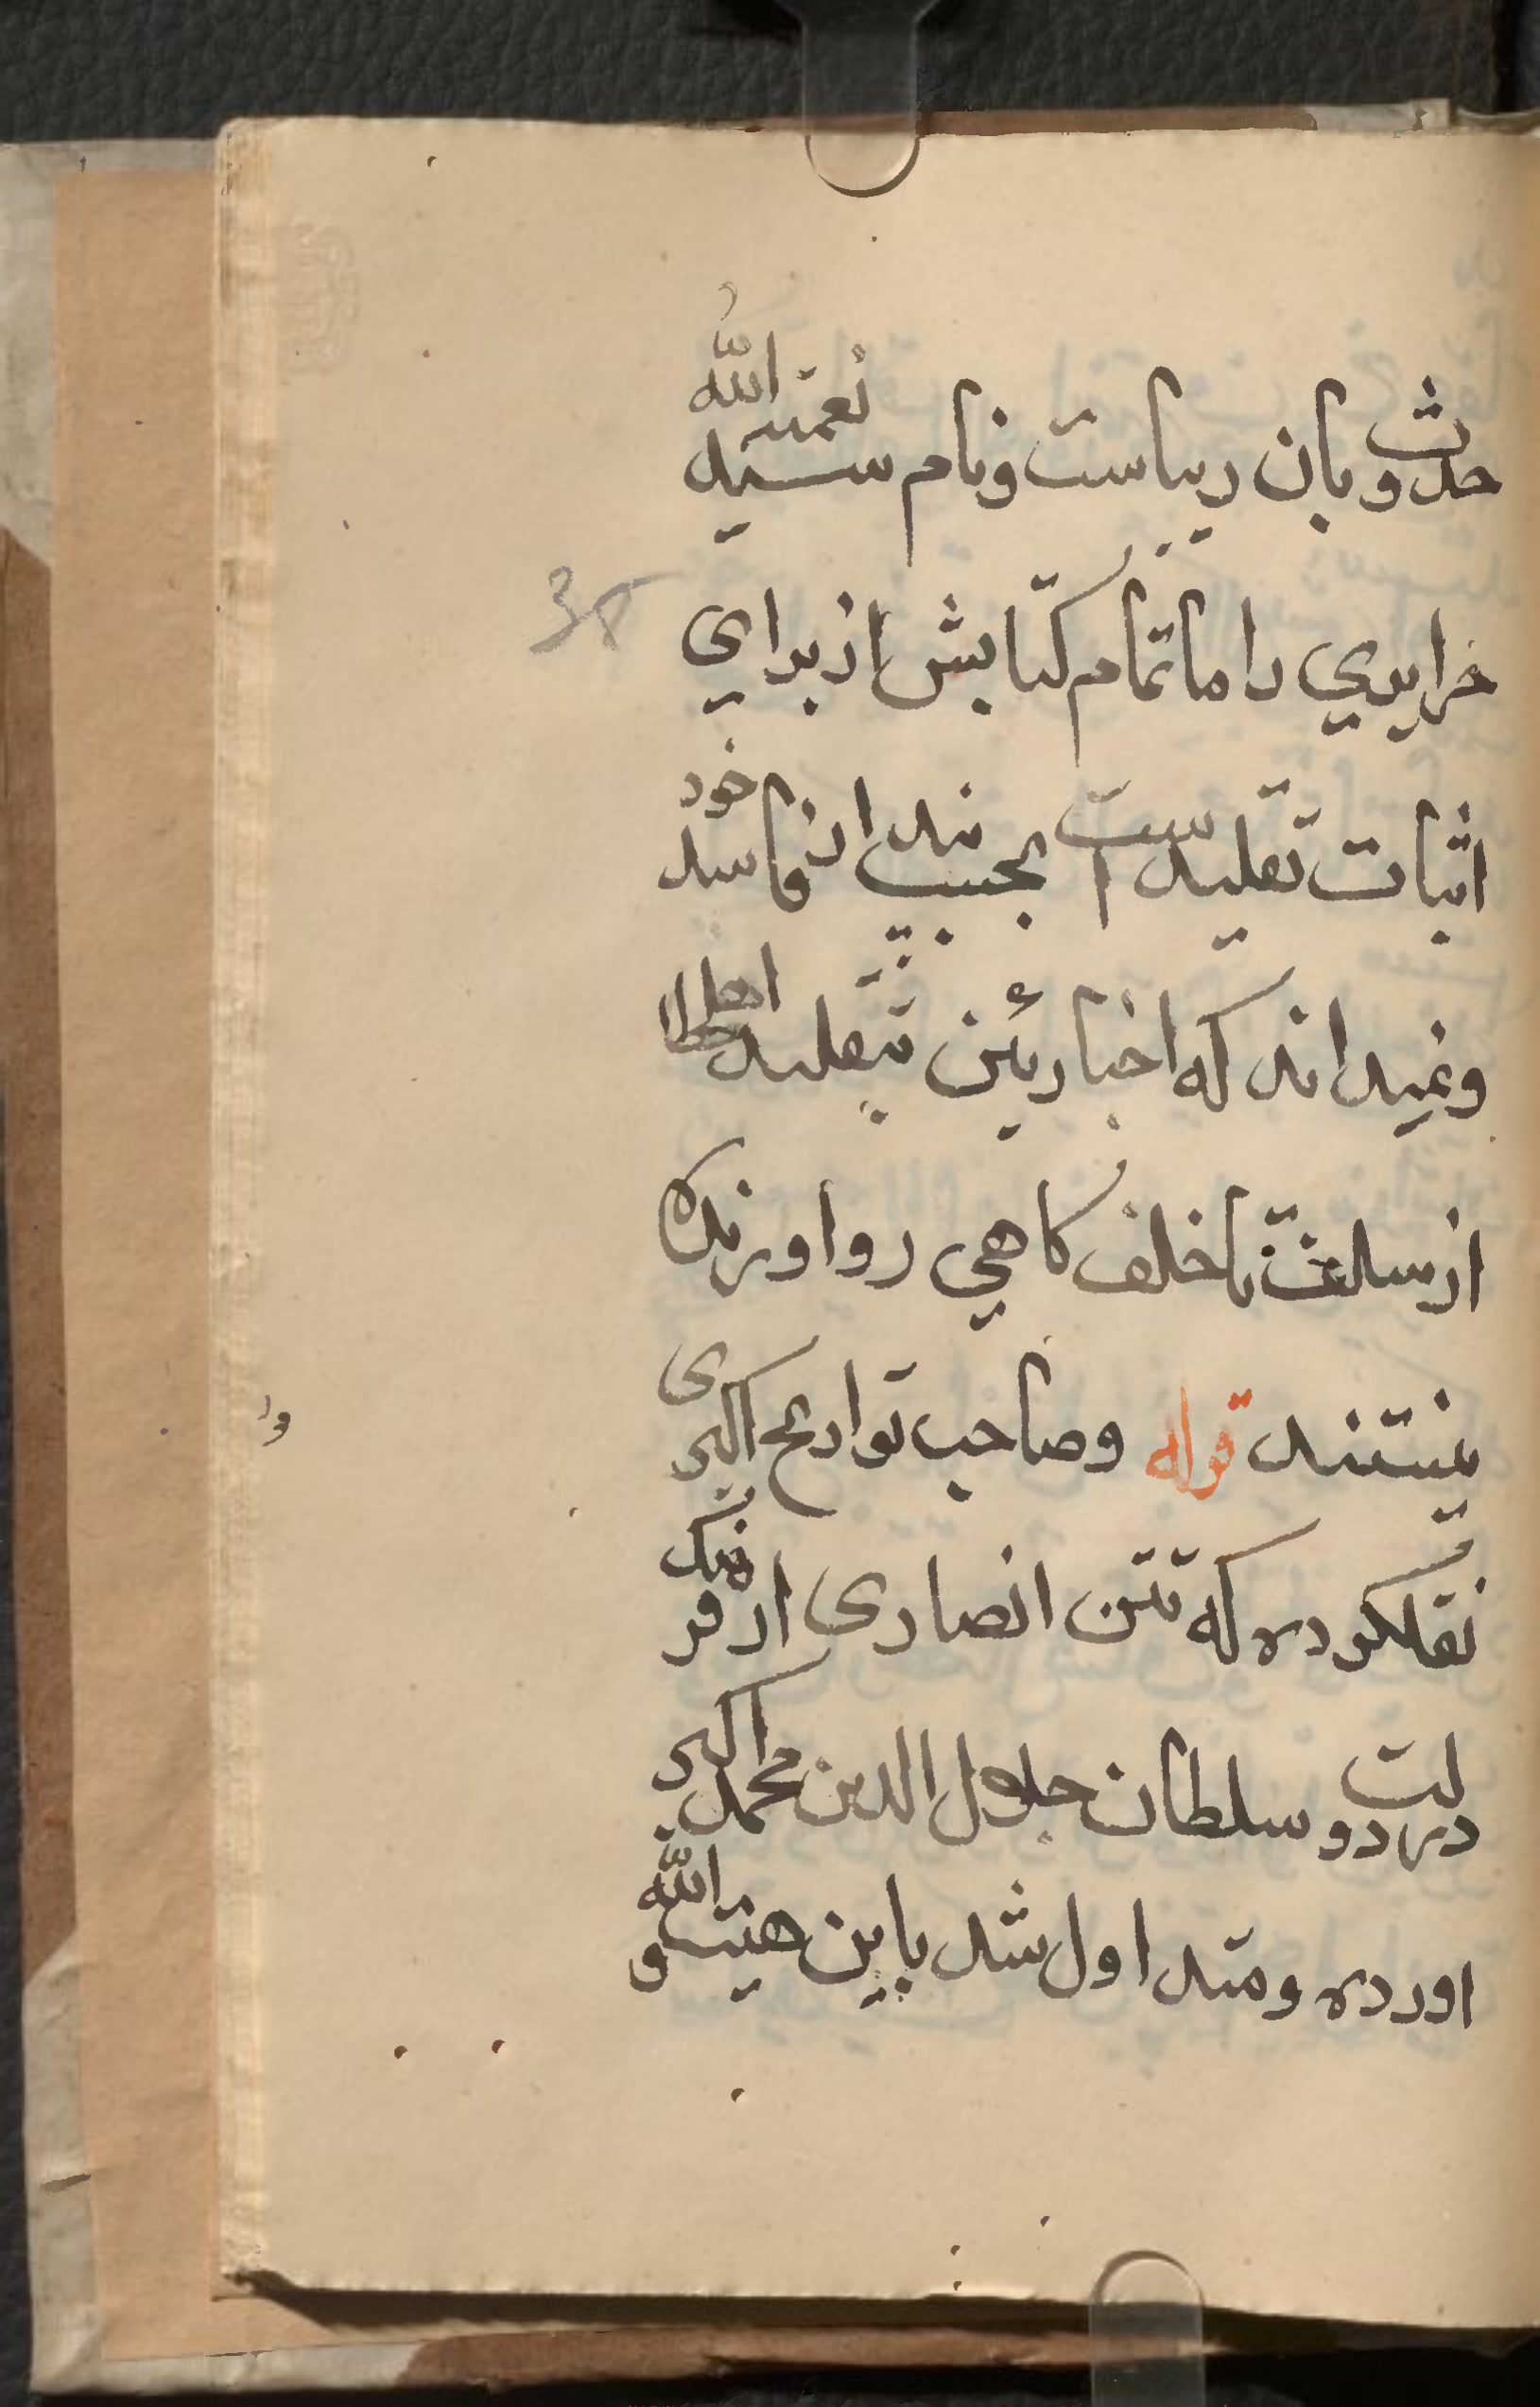 حدوث و بان ریاست و نام سید نعمت الله
جزایری را ما تمام کتابش از برای
اثبات تقلید است بجبیند از فاسد خود
و نمیداند که اخباریین بتقلید اهل خطا
از سلف تا خلف کاهی رو اور نکه
نیستند قوله و صاحب تواریخ اکبری
نقلکرده که تتن انصاری از فرنک
در دولت سلطان جلال الدین محمد اکبر
اورده و متداول شد باین هیت الله و